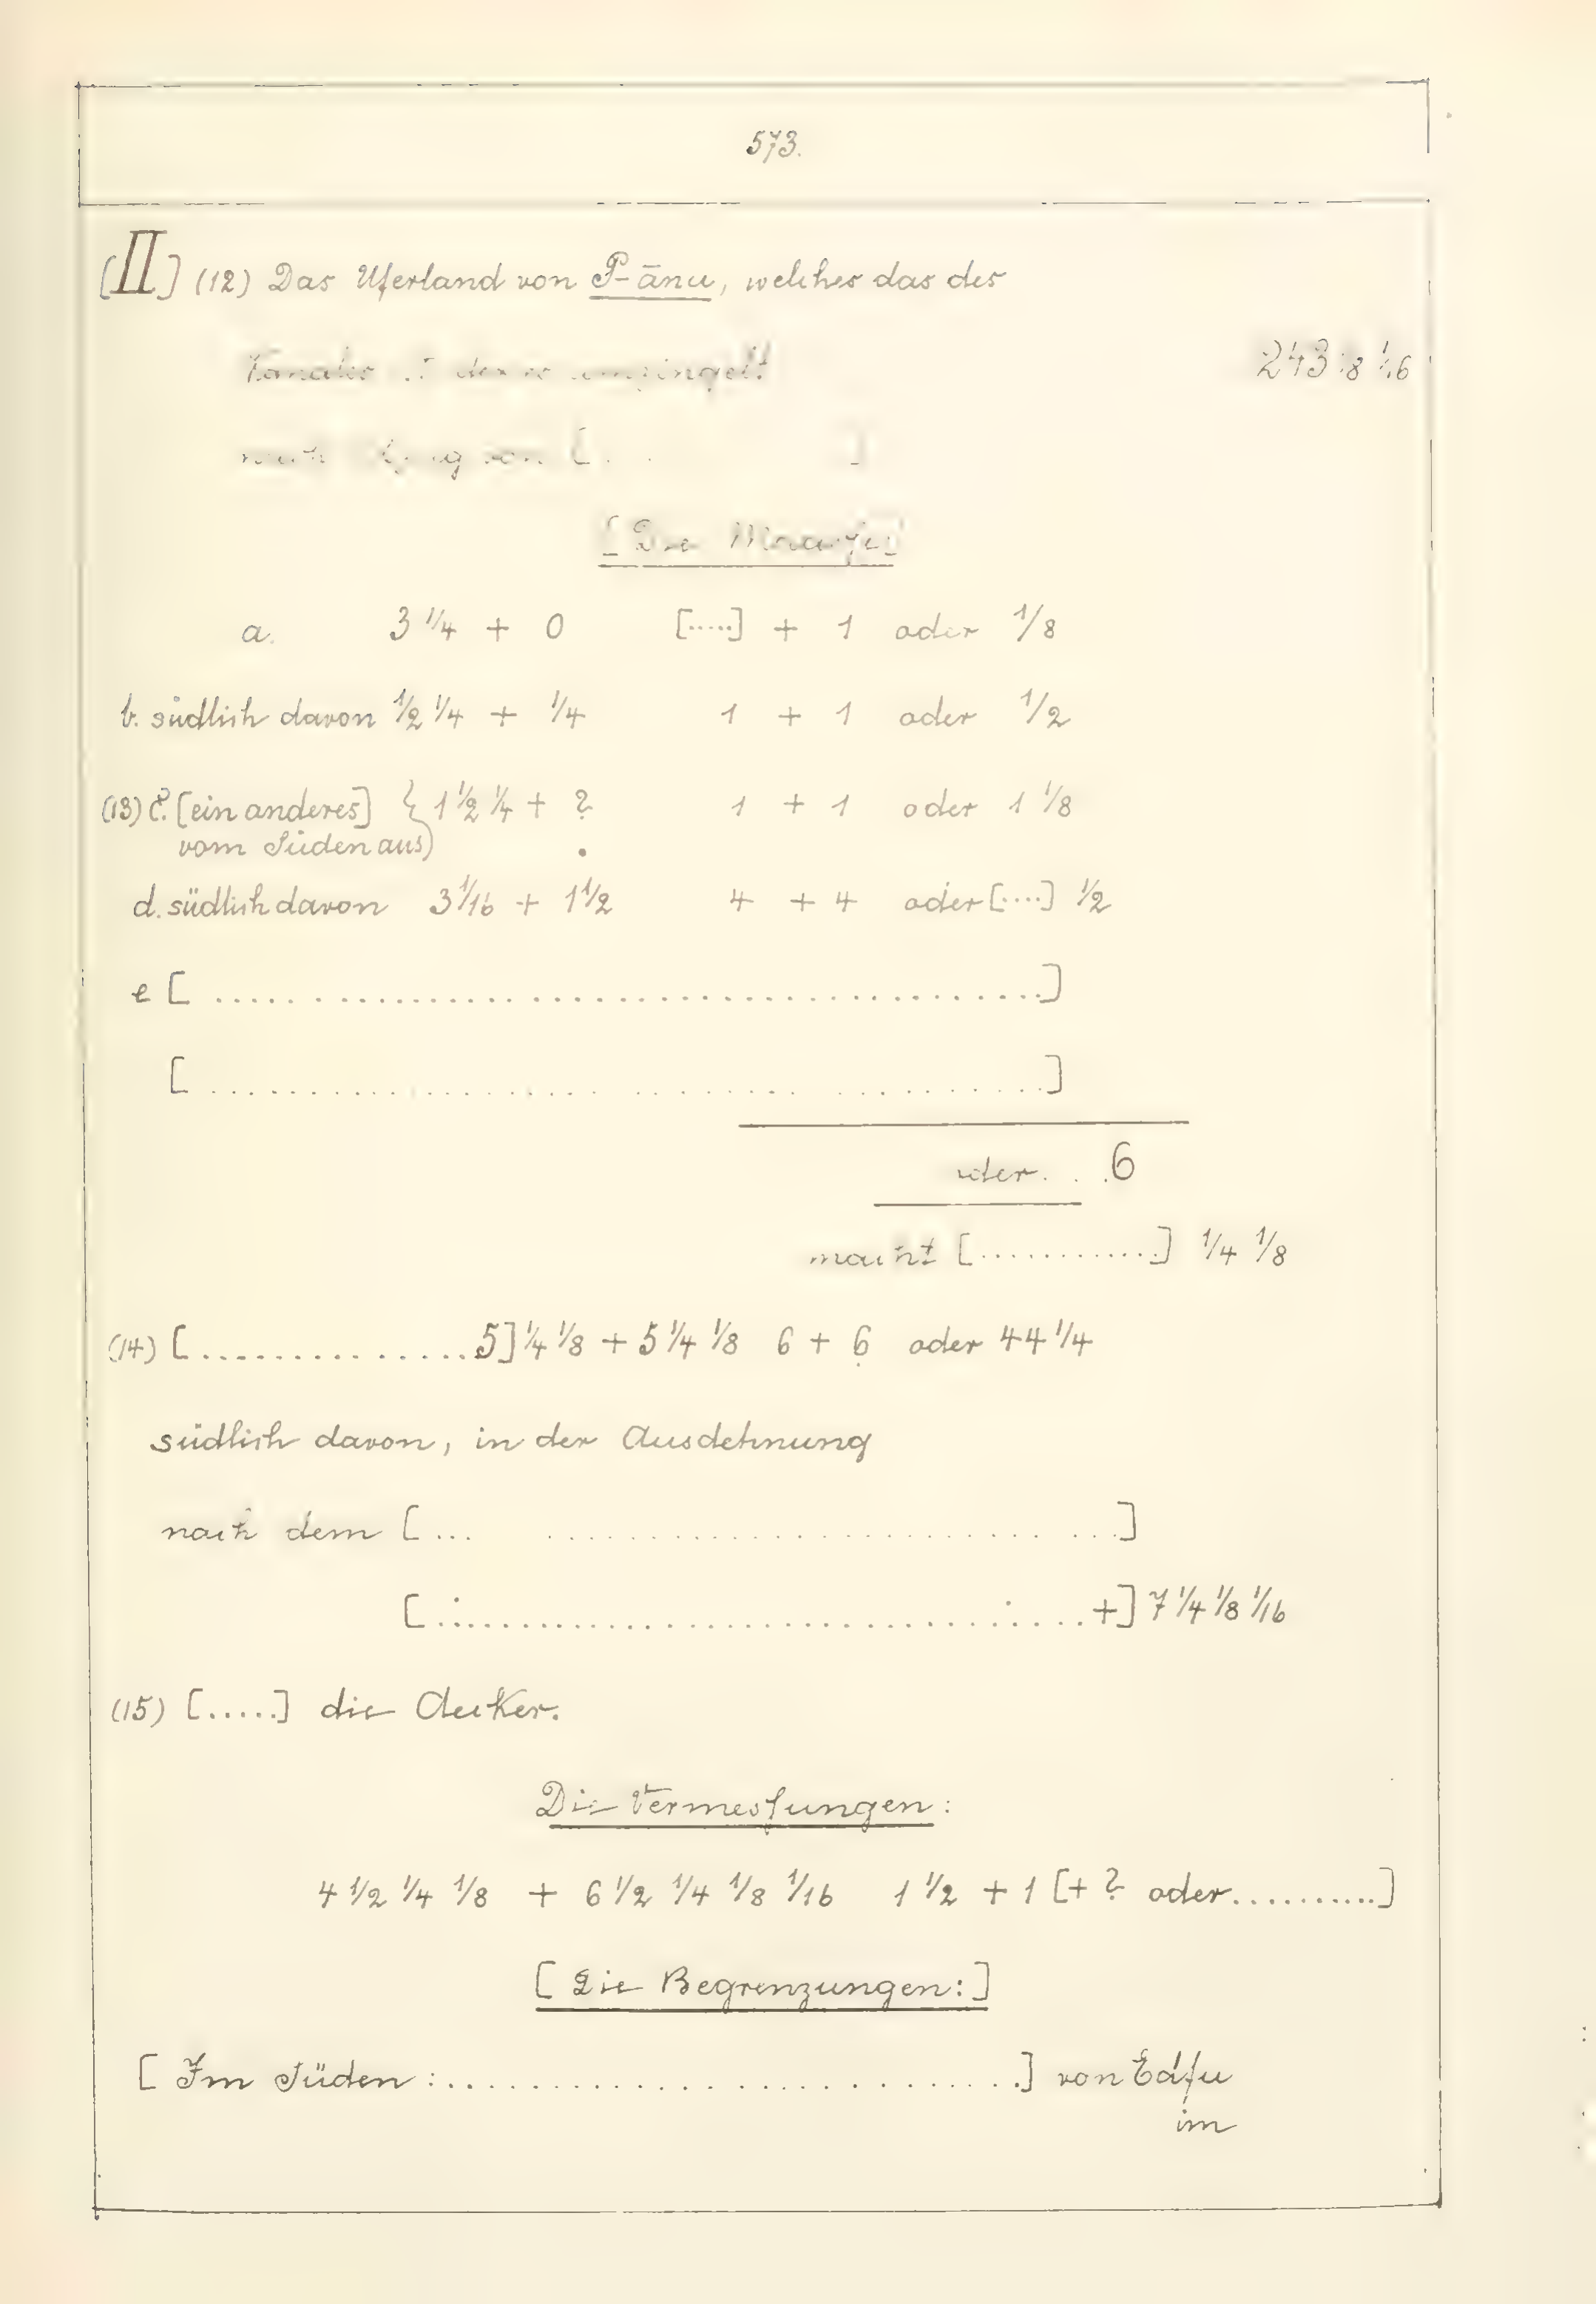 573.
[II] (12) Das Uferland von P-ānu, welches das des
Kanales ist, der es umzingelt 243 1/8 1/16
nach von [. . ]
[Die
a. 3 1/4 + 0 [.....] + 1 oder 1/8
b. südlich davon 1/2 1/4 + 1/4 1 + 1 oder 1/2
(13) c. [ein anderes] 1 1/2 1/4 + ? 1 + 1 oder 1 1/8
vom Süden aus)
d. südlich davon 3 1/16 + 1 1/2 4 + 4 oder [....] 1/2
e [..............................................]
[..............................................]
. . . 6
macht [............] 1/4 1/8
(14) [................5] 1/4 1/8 + 5 1/4 1/8 6 + 6 oder 44 1/4
südlich davon, in der Ausdehnung
nach dem [... ..............................]
[........................................+] 7 1/4 1/8 1/16
(15) [.....] die Aecker.
Die Vermessungen:
4 1/2 1/4 1/8 + 6 1/2 1/4 1/8 1/16 1 1/2 + 1 [+ ? oder...........]
[Die Begrenzungen:]
[Im Süden:................................] von Edfu
im